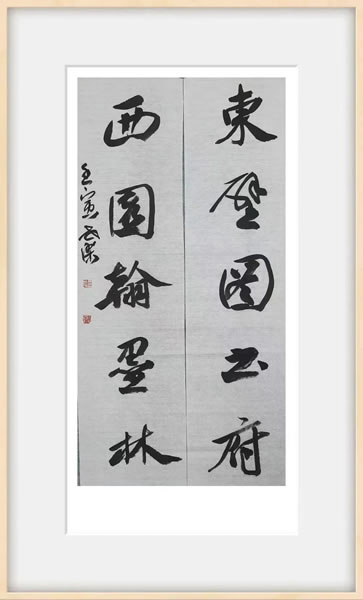 東壁圖書府
西園翰墨林
壬寅